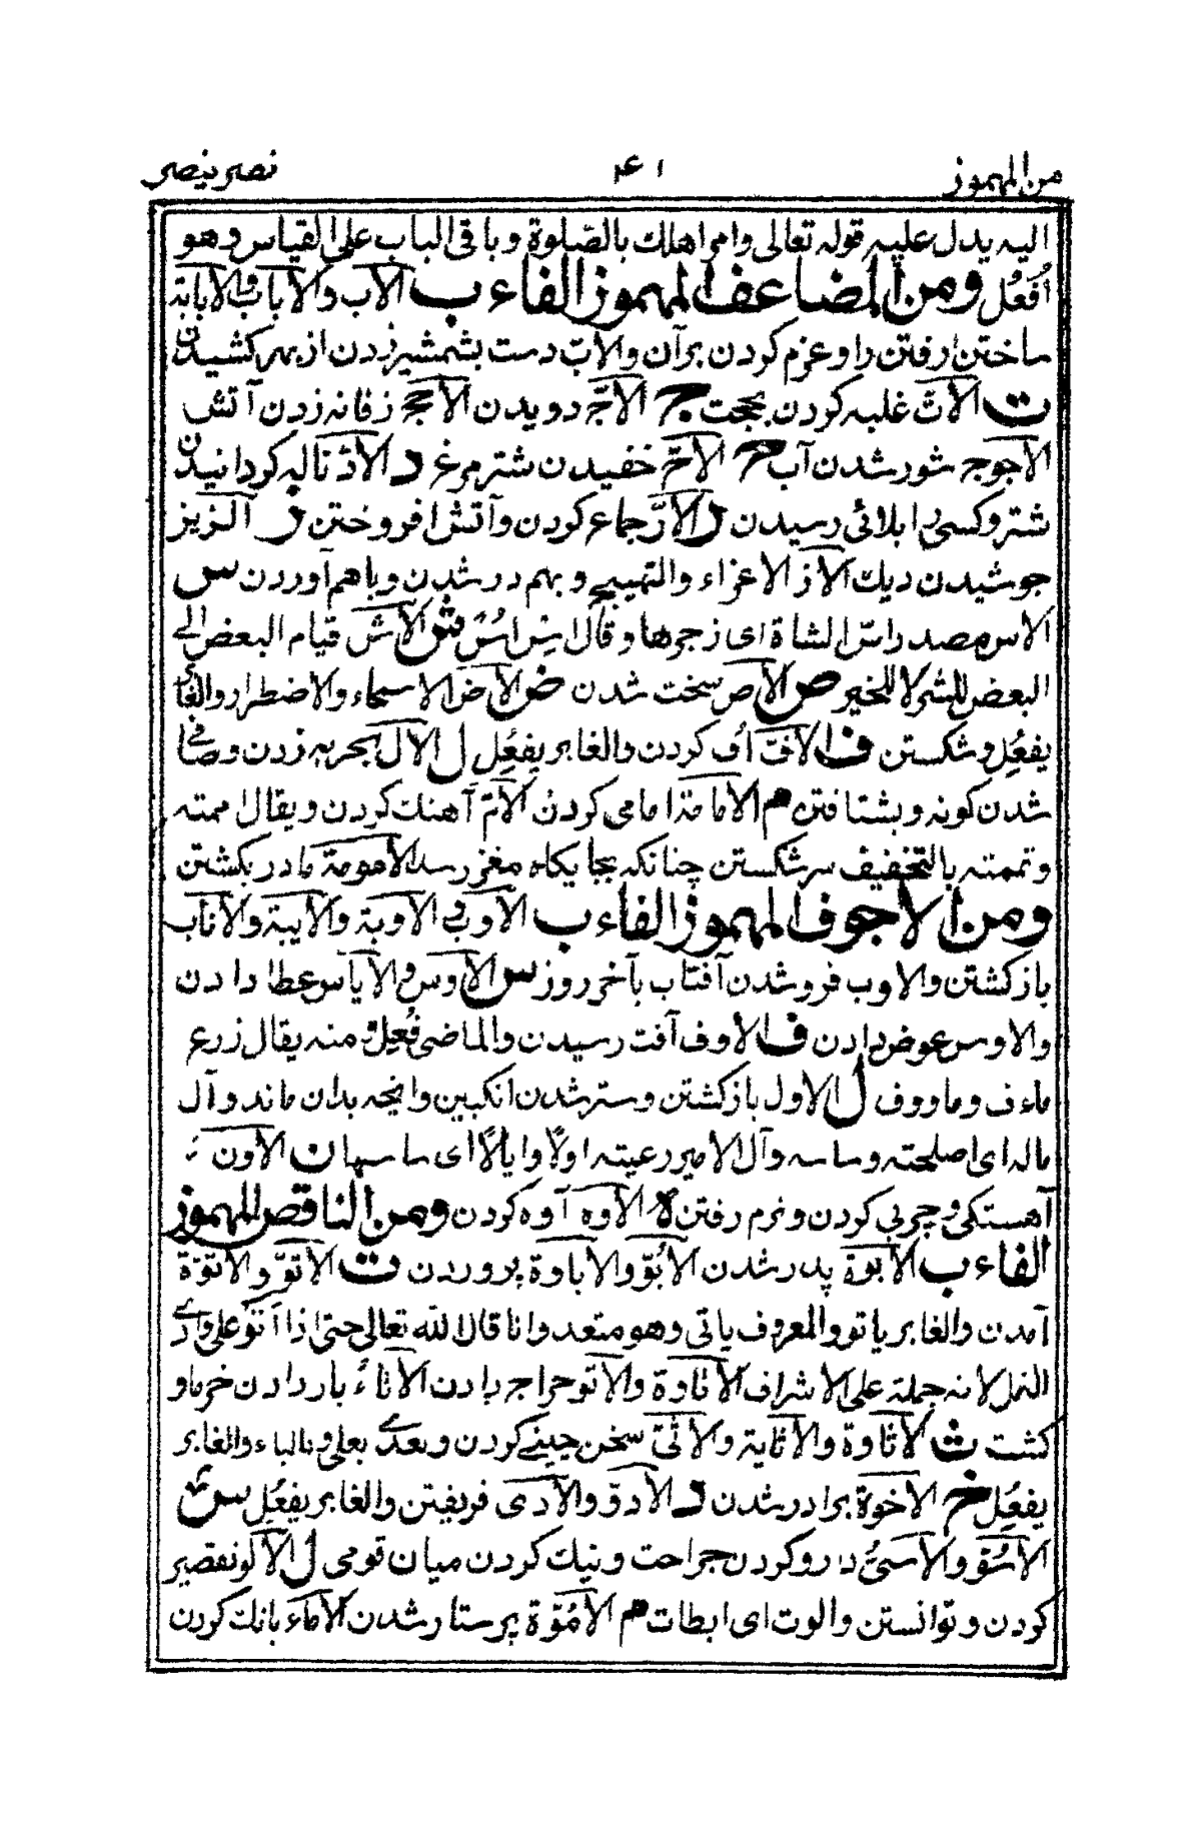 من المهموز ۴۱ نصر ینصر
الیه یدل علیه قوله تعالی وامر اهلك بالصّلوة وباقی الباب علی القیاس وهو
اُفعُل ومن المضاعف المهموز الفاء ب الاَبّ والاَباب والاَبابة
ساختن رفتن را وعزم کردن برآن والابّ دست بشمشیر زدن از بهر کشیدن
ت الاَتّ غلبه کردن بحجت ج الاَجّ دویدن الاَجیج زفانه زدن آتش
الاُجوج شور شدن آب ح الاَحّ خفیدن شتر مرغ د الادّ ناله کردانیدن
شتر وکسی را بلائی رسیدن ر الاَرّ جماع کردن وآتش افروختن ز الازیز
جوشیدن دیك الاَزّ الاغراء والتهییج وبهم در شدن وباهم آوردن س
الاس مصدر اسّ الشاة ای زجرها وقال اِسْ اُسْ ش الاَشّ قیام البعض الی
البعض للشر لا للخیر ص الاَص سخت شدن ض الاَضّ الاسماء والاضطرار والغابر
یفعُل وشکستن ف الاَفّ اُف کردن والغابر یفعُل ل الاَلّ بحربه زدن وصافی
شدن کونه وبشتافتن م الامامة امامی کردن الاَمّ آهنك کردن ویقال اممته
وتممته بالتخفیف سر شکستن چنانکه بجایکاه مغز رسد الاُمومة مادر بکشتن
ومن الاجوف المهموز الفاء ب الاَوب والاَوبة والاَیبة والاَیاب
باز کشتن والاوب فرو شدن آفتاب بآخر روز س الاَوس والایاس عطا دادن
والاوس عوض دادن ف الاوف آفت رسیدن والماضی فُعِل منه یقال زرع
ماءف وماووف ل الاول باز کشتن وستر شدن انکبین وانچه بدان ماند وآل
ماله ای اصلحته وساسه وآل الامیر رعیته اولًا وایالًا ای ساسها ن الاَون
آهستکی وچربی کردن ونرم رفتن ه الاَوه آوه کردن ومن الناقص المهموز
الفاء ب الاُبوة پدر شدن الاَبُوّ والاَباوة پروردن ت الاَتوّ والاَتوّة
آمدن والغابر یاتو والمعروف یاتی وهو متعد وانا قال الله تعالی حتی اذا اَتَوْ علی وادی
النمل لانه جملة علی الاشراف الاَتاوة والاَتو خراج دادن الاَتاءُ بار دادن خرما و
کشت ث الاَثاوة والاَثایة والاَثیّ سخن چینے کردن وبعدی بعلی وبالباء والغابر
یفعُل خ الاُخوة برادر شدن د الاَدوّ والاَدی فریفتن والغابر یفعُل س
الاَسُوّ والاَسَیُّ دارو کردن جراحت ونیك کردن میان قومی ل الاَلو تقصیر
کردن وتوانستن والوت ای ابطات م الاُمُوّة پرستار شدن الاُماء بانك کردن